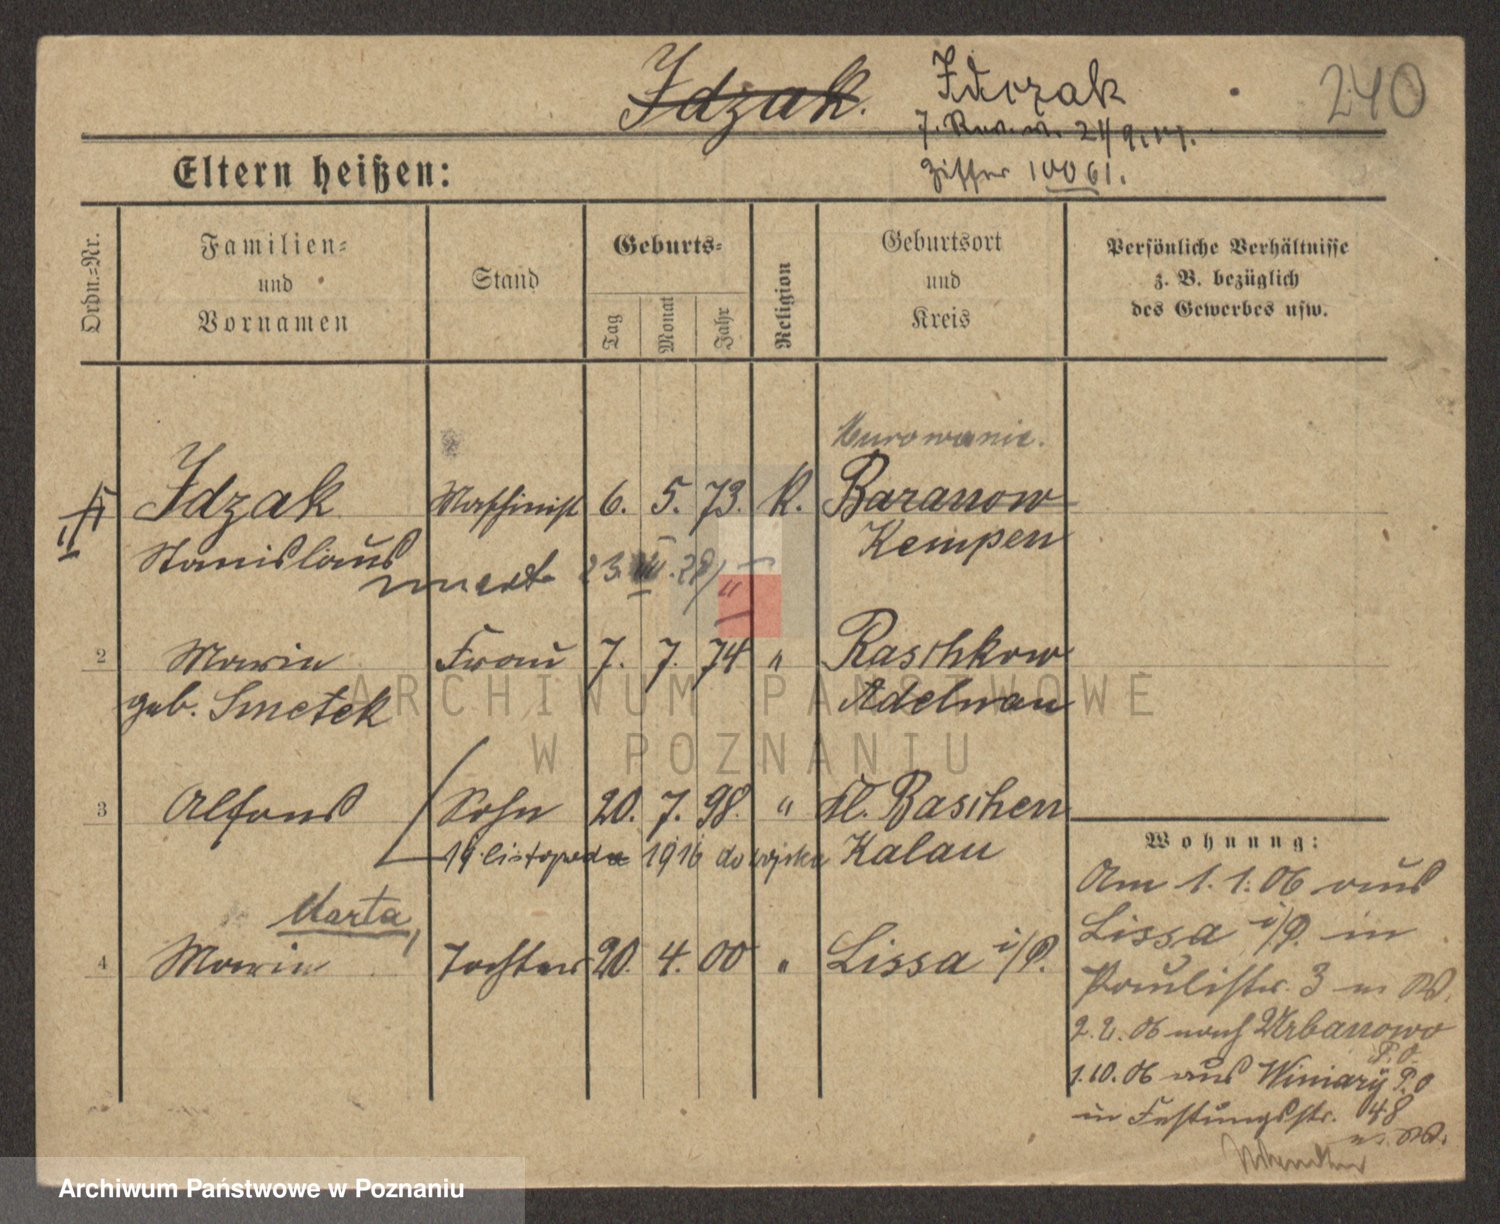 Idzak.
Idczak
240
7. Rev. v. 24 9. 17.
Ziffer 10061.
Eltern heißen:
Ordn.=Nr.
Familien=
und
Vornamen
Stand
Geburts=
Tag
Monat
Jahr
Religion
Geburtsort
und
Kreis
Persönliche Verhältnisse
z. B. bezüglich
des Gewerbes usw.
Murowanie.
Idzak Maschinist 6. 5. 73. K. Baranow
Stanislaus Kempen
23. VII. 28
2 Maria Frau 7. 7. 74 " Raschkow
geb. Smetek Adelnau
3 Alfons Sohn 20. 7. 98. " Kl. Baschen
19 listopada 1916 do wojska Kalau
Marta,
4 Maria Tochter 20. 4. 00 " Lissa i/P.
Wohnung:
Am 1.1.06 aus
Lissa i/P. in
Paulistr. 3 m W.
2.2.06 nach Urbanowo
P.O.
1.10.06 aus Winiary P.O
in Festungsstr. 48
m. W.
ARCHIWUM PAŃSTWOWE
W POZNANIU
Archiwum Państwowe w Poznaniu